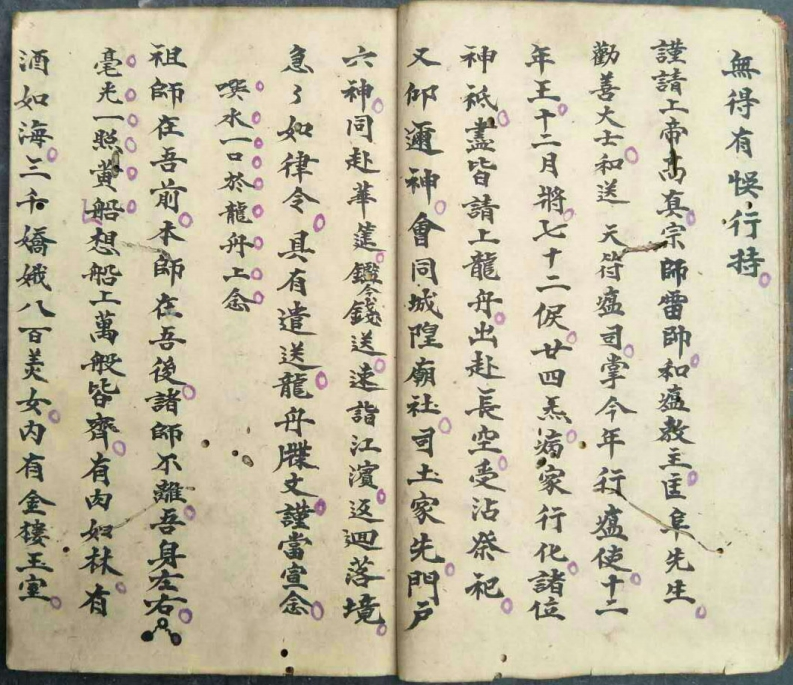 無得有悮行持
謹請上帝高真宗師雷帥和瘟教主匡阜先生
勸善大士和送天符瘟司掌今年行瘟使十二
年王十二月将七十二候廿四炁病家行化諸位
神祇盡皆請上龍舟出赴長空受沾祭祀
又仰邇神會同城隍廟社司土家先門戶
六神同赴華筵鑑今錢送速詣江濱返迴落境
急々如律令具有遣送龍舟牒文謹當宣念
噀水一口於龍舟上念
祖師在吾前本師在吾後諸師不離吾身左右
毫光一照黄船想船上萬般皆齊有肉如林有
酒如海三千嬌娥八百美女内有金樓玉室